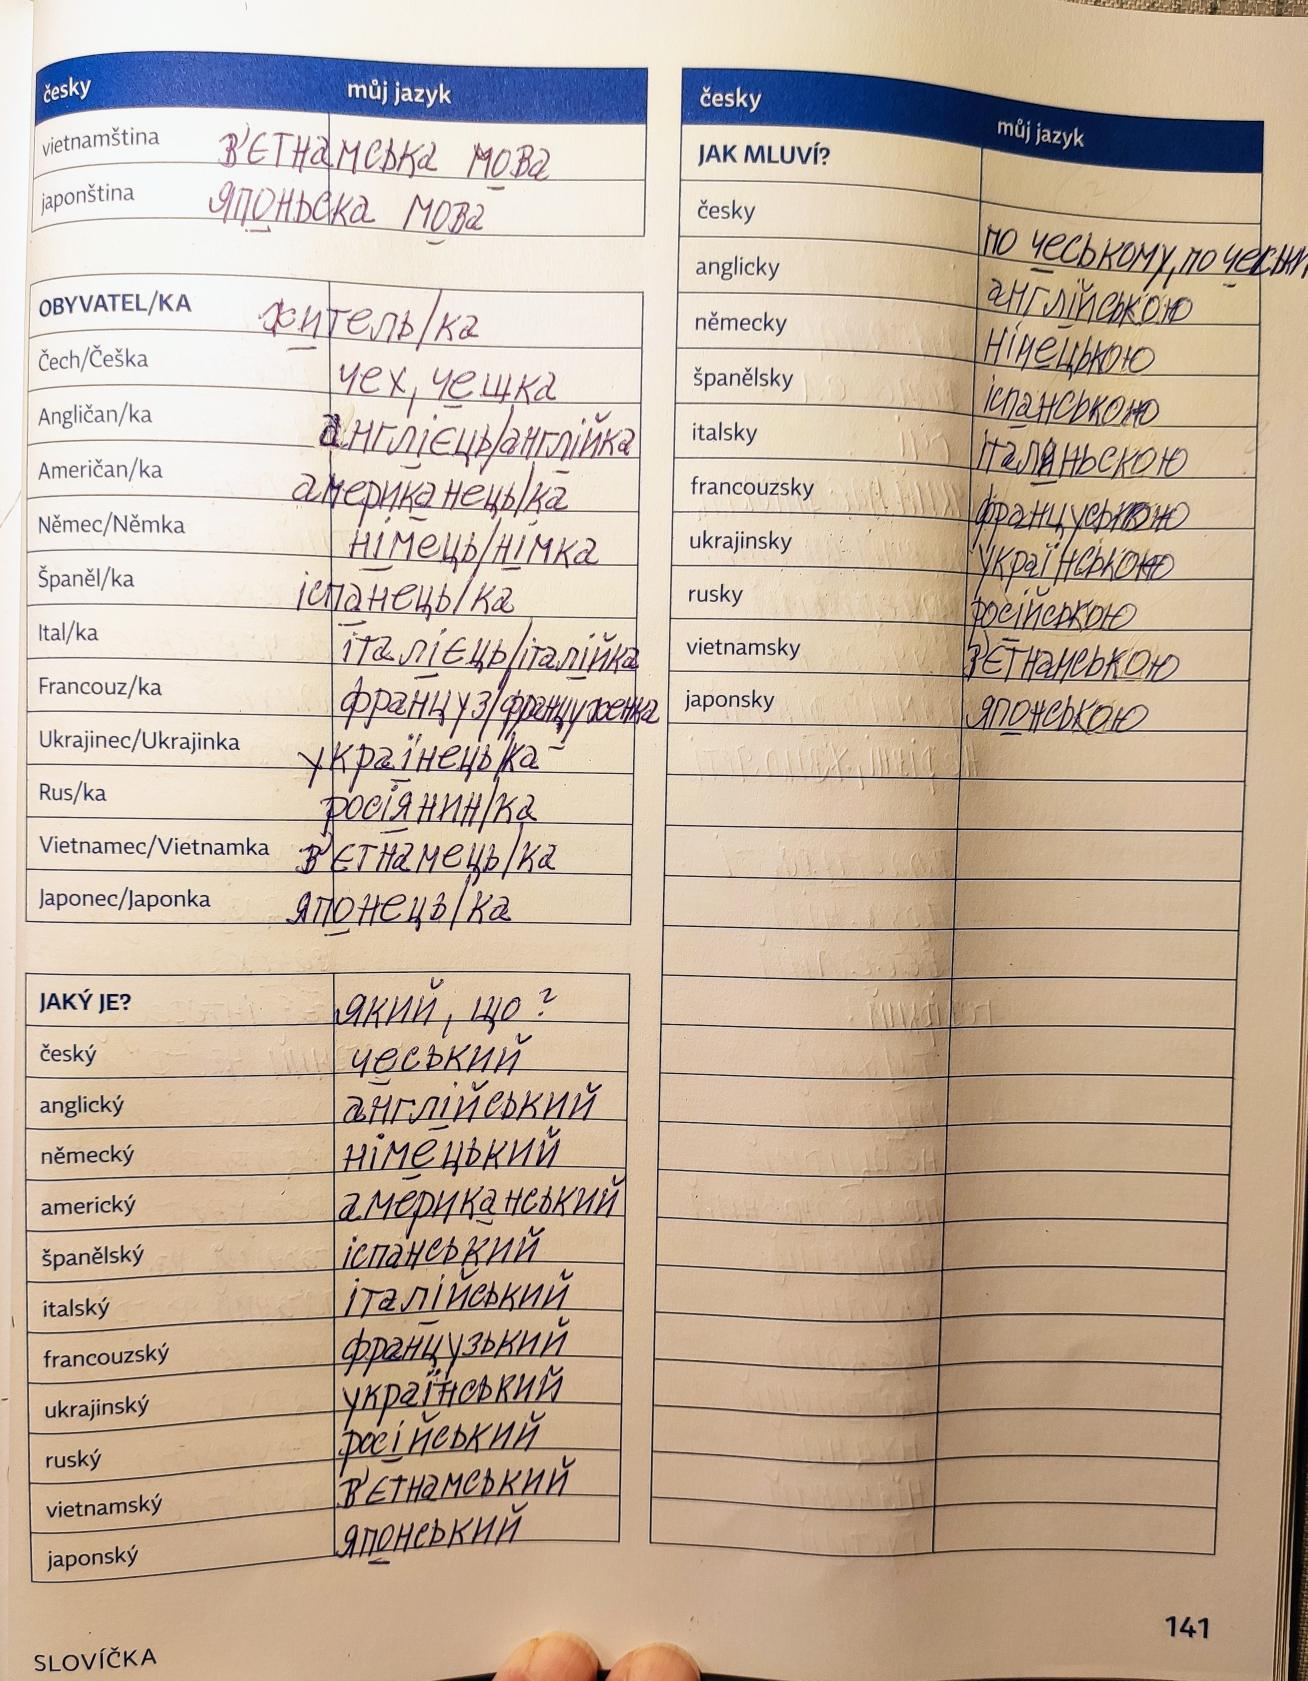 česky můj jazyk
vietnamština в'єтнамська мова
japonština японьска мова
OBYVATEL/KA житель/ка
Čech/Češka чех, чешка
Angličan/ka англієць/англійка
Američan/ka американець/ка
Němec/Němka німець/німка
Španěl/ka іспанець/ка
Ital/ka італієць/італійка
Francouz/ka француз/француженка
Ukrajinec/Ukrajinka українець/ка
Rus/ka росіянин/ка
Vietnamec/Vietnamka в'єтнамець/ка
Japonec/Japonka японець/ка
JAKÝ JE? який, що?
český чеський
anglický англійський
německý німецький
americký американський
španělský іспанський
italský італійський
francouzský французький
ukrajinský український
ruský російський
vietnamský в'єтнамський
japonský японський
česky můj jazyk
JAK MLUVÍ?
česky по чеському, по
anglicky англійською
německy німецькою
španělsky іспанською
italsky італяньскою
francouzsky француською
ukrajinsky українською
rusky російською
vietnamsky в'єтнанською
japonsky японською
SLOVÍČKA
141